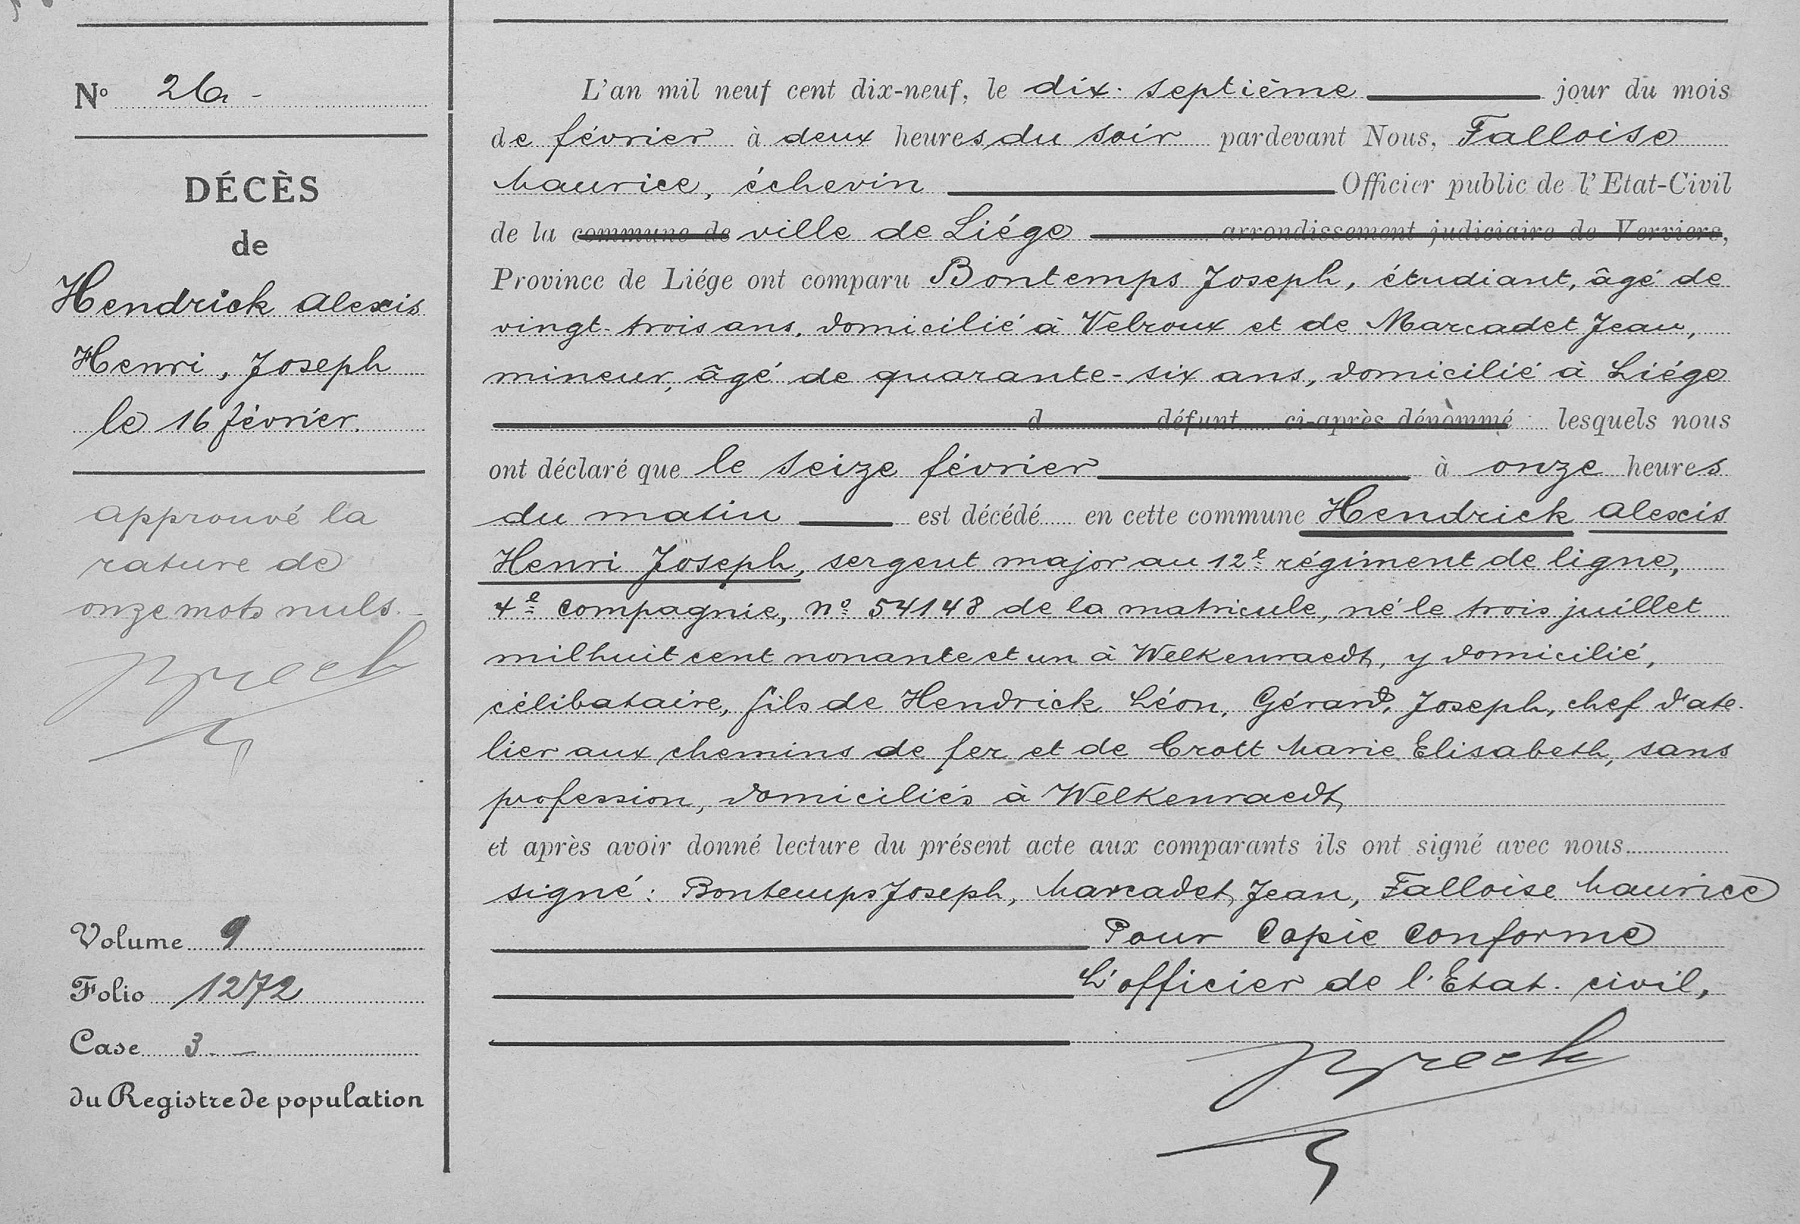 N° 26
DÉCÈS
de
Hendrick Alexis
Henri, Joseph
le 16 février.
approuvé la
rature de
onze mots nuls.
Volume 9
Folio 1272
Case 3
du Registre de population
L'an mil neuf cent dix-neuf, le dix-septième jour du mois
de février à deux heures du soir pardevant Nous, Falloise
Maurice, échevin Officier public de l'Etat-Civil
de la commune de ville de Liége arrondissement judiciaire de Verviers,
Province de Liége ont comparu Bontemps Joseph, étudiant, âgé de
vingt-trois ans, domicilié à Velroux et de Marcadet Jean,
mineur, âgé de quarante-six ans, domicilié à Liége
d défunt ci-après dénommé lesquels nous
ont déclaré que le seize février à onze heures
du matin est décédé en cette commune Hendrick Alexis
Henri Joseph, sergent major au 12e régiment de ligne,
4e compagnie, no 54148 de la matricule, né le trois juillet
mil huit cent nonante et un à Welkenraedt, y domicilié,
célibataire, fils de Hendrick Léon, Gérard, Joseph, chef d'ate-
lier aux chemins de fer et de Crott Marie Elisabeth, sans
profession, domiciliés à Welkenraedt
et après avoir donné lecture du présent acte aux comparants ils ont signé avec nous
signé: Bontemps Joseph, Marcadet Jean, Falloise Maurice
Pour Copie Conforme
L'officier de l'Etat-civil,